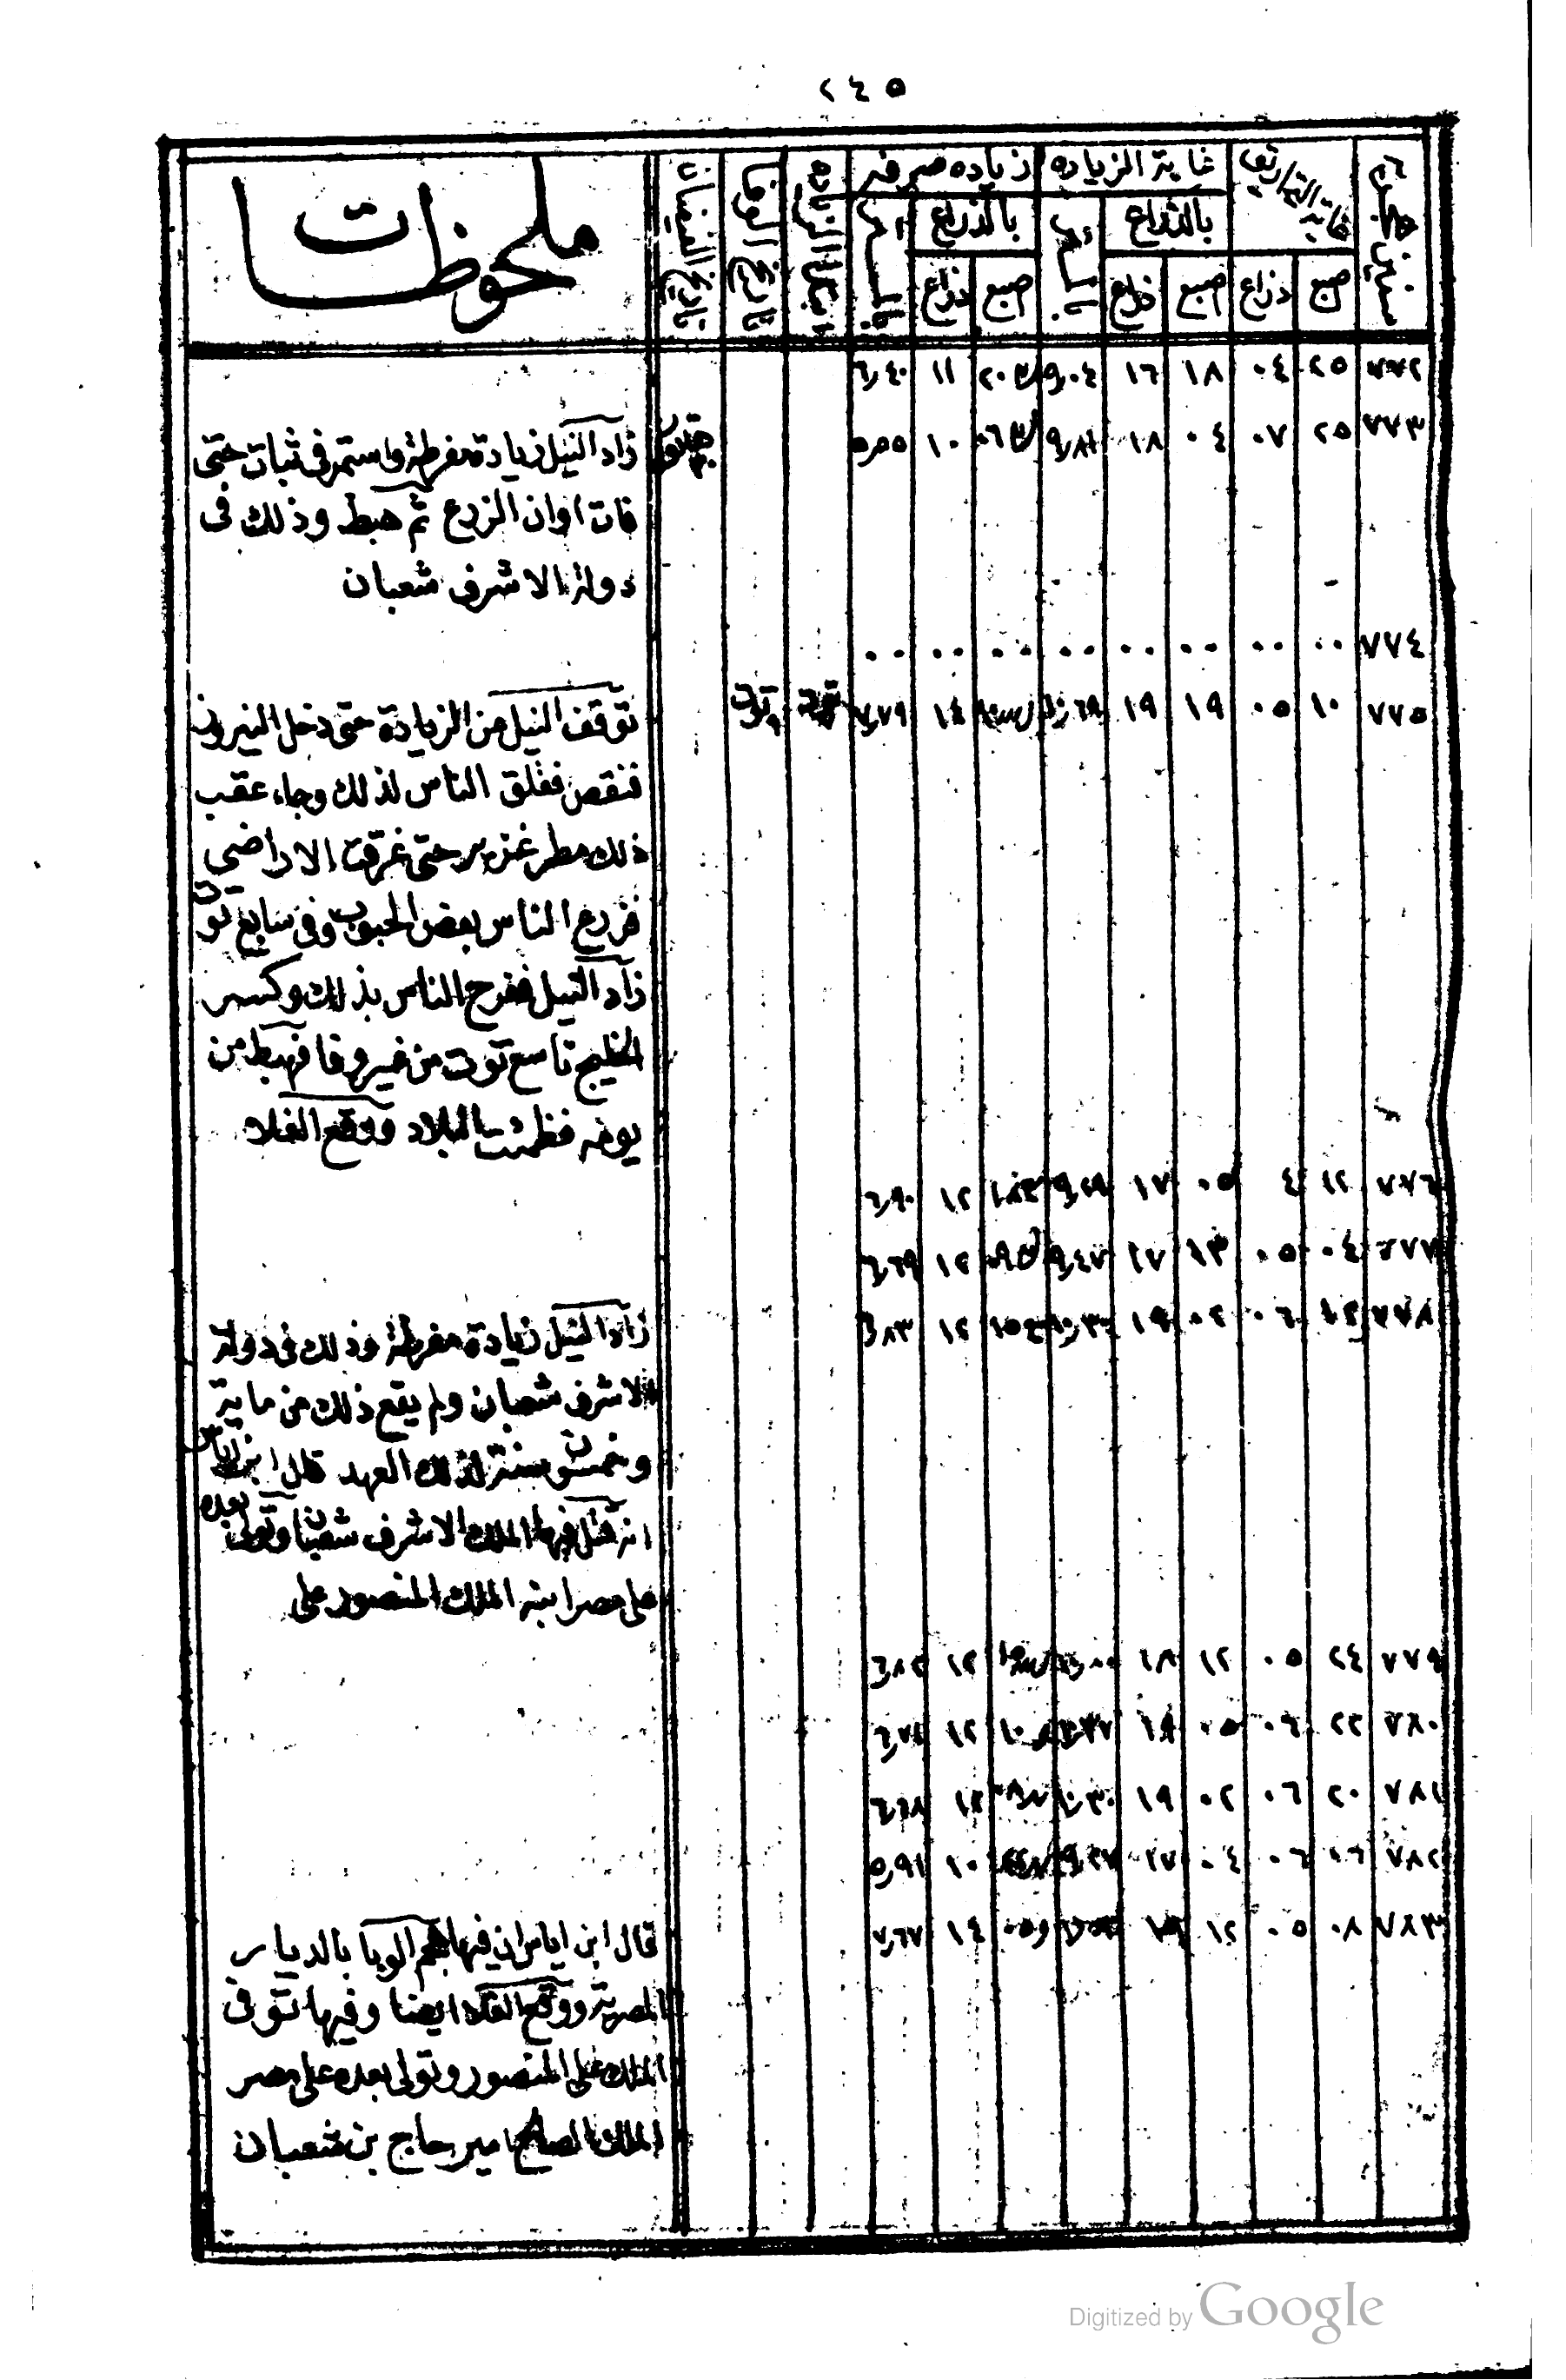 ٢٤٥
غاية التحاريق غاية الزياده زياده صرفه
بالذراع بالذراع
صبع ذراع اصبع ذراع اصبع ذراع
ملحوظات
٧٧٢ ٢٥ ٠٤ ١٨ ١٦ ٩,٠٤ ١١ ٦,٤٠
٧٧٣ ٢٥ ٠٧ ٠٤ ١٨ ١٠ ٥,٥٥
زاد النيل زيادة مفرطة واستمر فى ثبات حتى
فات اوان الزرع ثم هبط وذلك فى
دولة الاشرف شعبان
٧٧٤ ٠٠ ٠٠ ٠٠ ٠٠ ٠٠ ٠٠ ٠٠ ٠٠
٧٧٥ ١٠ ٠٥ ١٩ ١٩ ١٤ ٧,٧٩
توقف النيل من الزيادة حتى دخل النيروز
فنقص فقلق الناس لذلك وجاء عقب
ذلك مطر غزير حتى غرقت الاراضى
فزرع الناس بعض الحبوب وفى سابع توت
زاد النيل ففرح الناس بذلك وكسر
الخليج تاسع توت من غير وفا فهبط من
يومه فظمئت البلاد ووقع الغلاء
٧٧٦ ١٢ ٤ ٠٥ ١٧ ١٢ ٦,٩٠
٧٧٧ ٠٤ ٠٥ ١٣ ١٧ ٩,٤٧ ١٢ ٦,٦٩
٧٧٨ ١٢ ٠٦ ٠٢ ١٩ ١٠,٣٠ ١٢ ٦,٨٣
زاد النيل زيادة مفرطة وذلك فى دولة
الاشرف شعبان ولم يقع ذلك من ماية
وخمسون سنة لذلك العهد قال ابن اياس
انه قتل فيها الملك الاشرف شعبان وتولى بعده
على مصر ابنه الملك المنصور على
٧٧٩ ٢٤ ٠٥ ١٢ ١٨ ١٢ ٦,٨٢
٧٨٠ ٢٢ ٠٦ ٠٥ ١٩ ١٢
٧٨١ ٢٠ ٠٦ ٠٢ ١٩ ١٠,٣٠ ١٢ ٦,٦٨
٧٨٢ ٠٦ ٠٦ ٠٤ ١٧ ١٠ ٥,٩١
٧٨٣ ٠٨ ٠٥ ١٢ ١٩ ١٤ ٧,٦٧
قال ابن اياس ان فيها هجم الوبا بالديار
المصرية ووقع الغلا ايضا وفيها توفى
الملك على المنصور وتولى بعده على مصر
الملك الصالح امير حاج بن شعبان
Digitized by Google